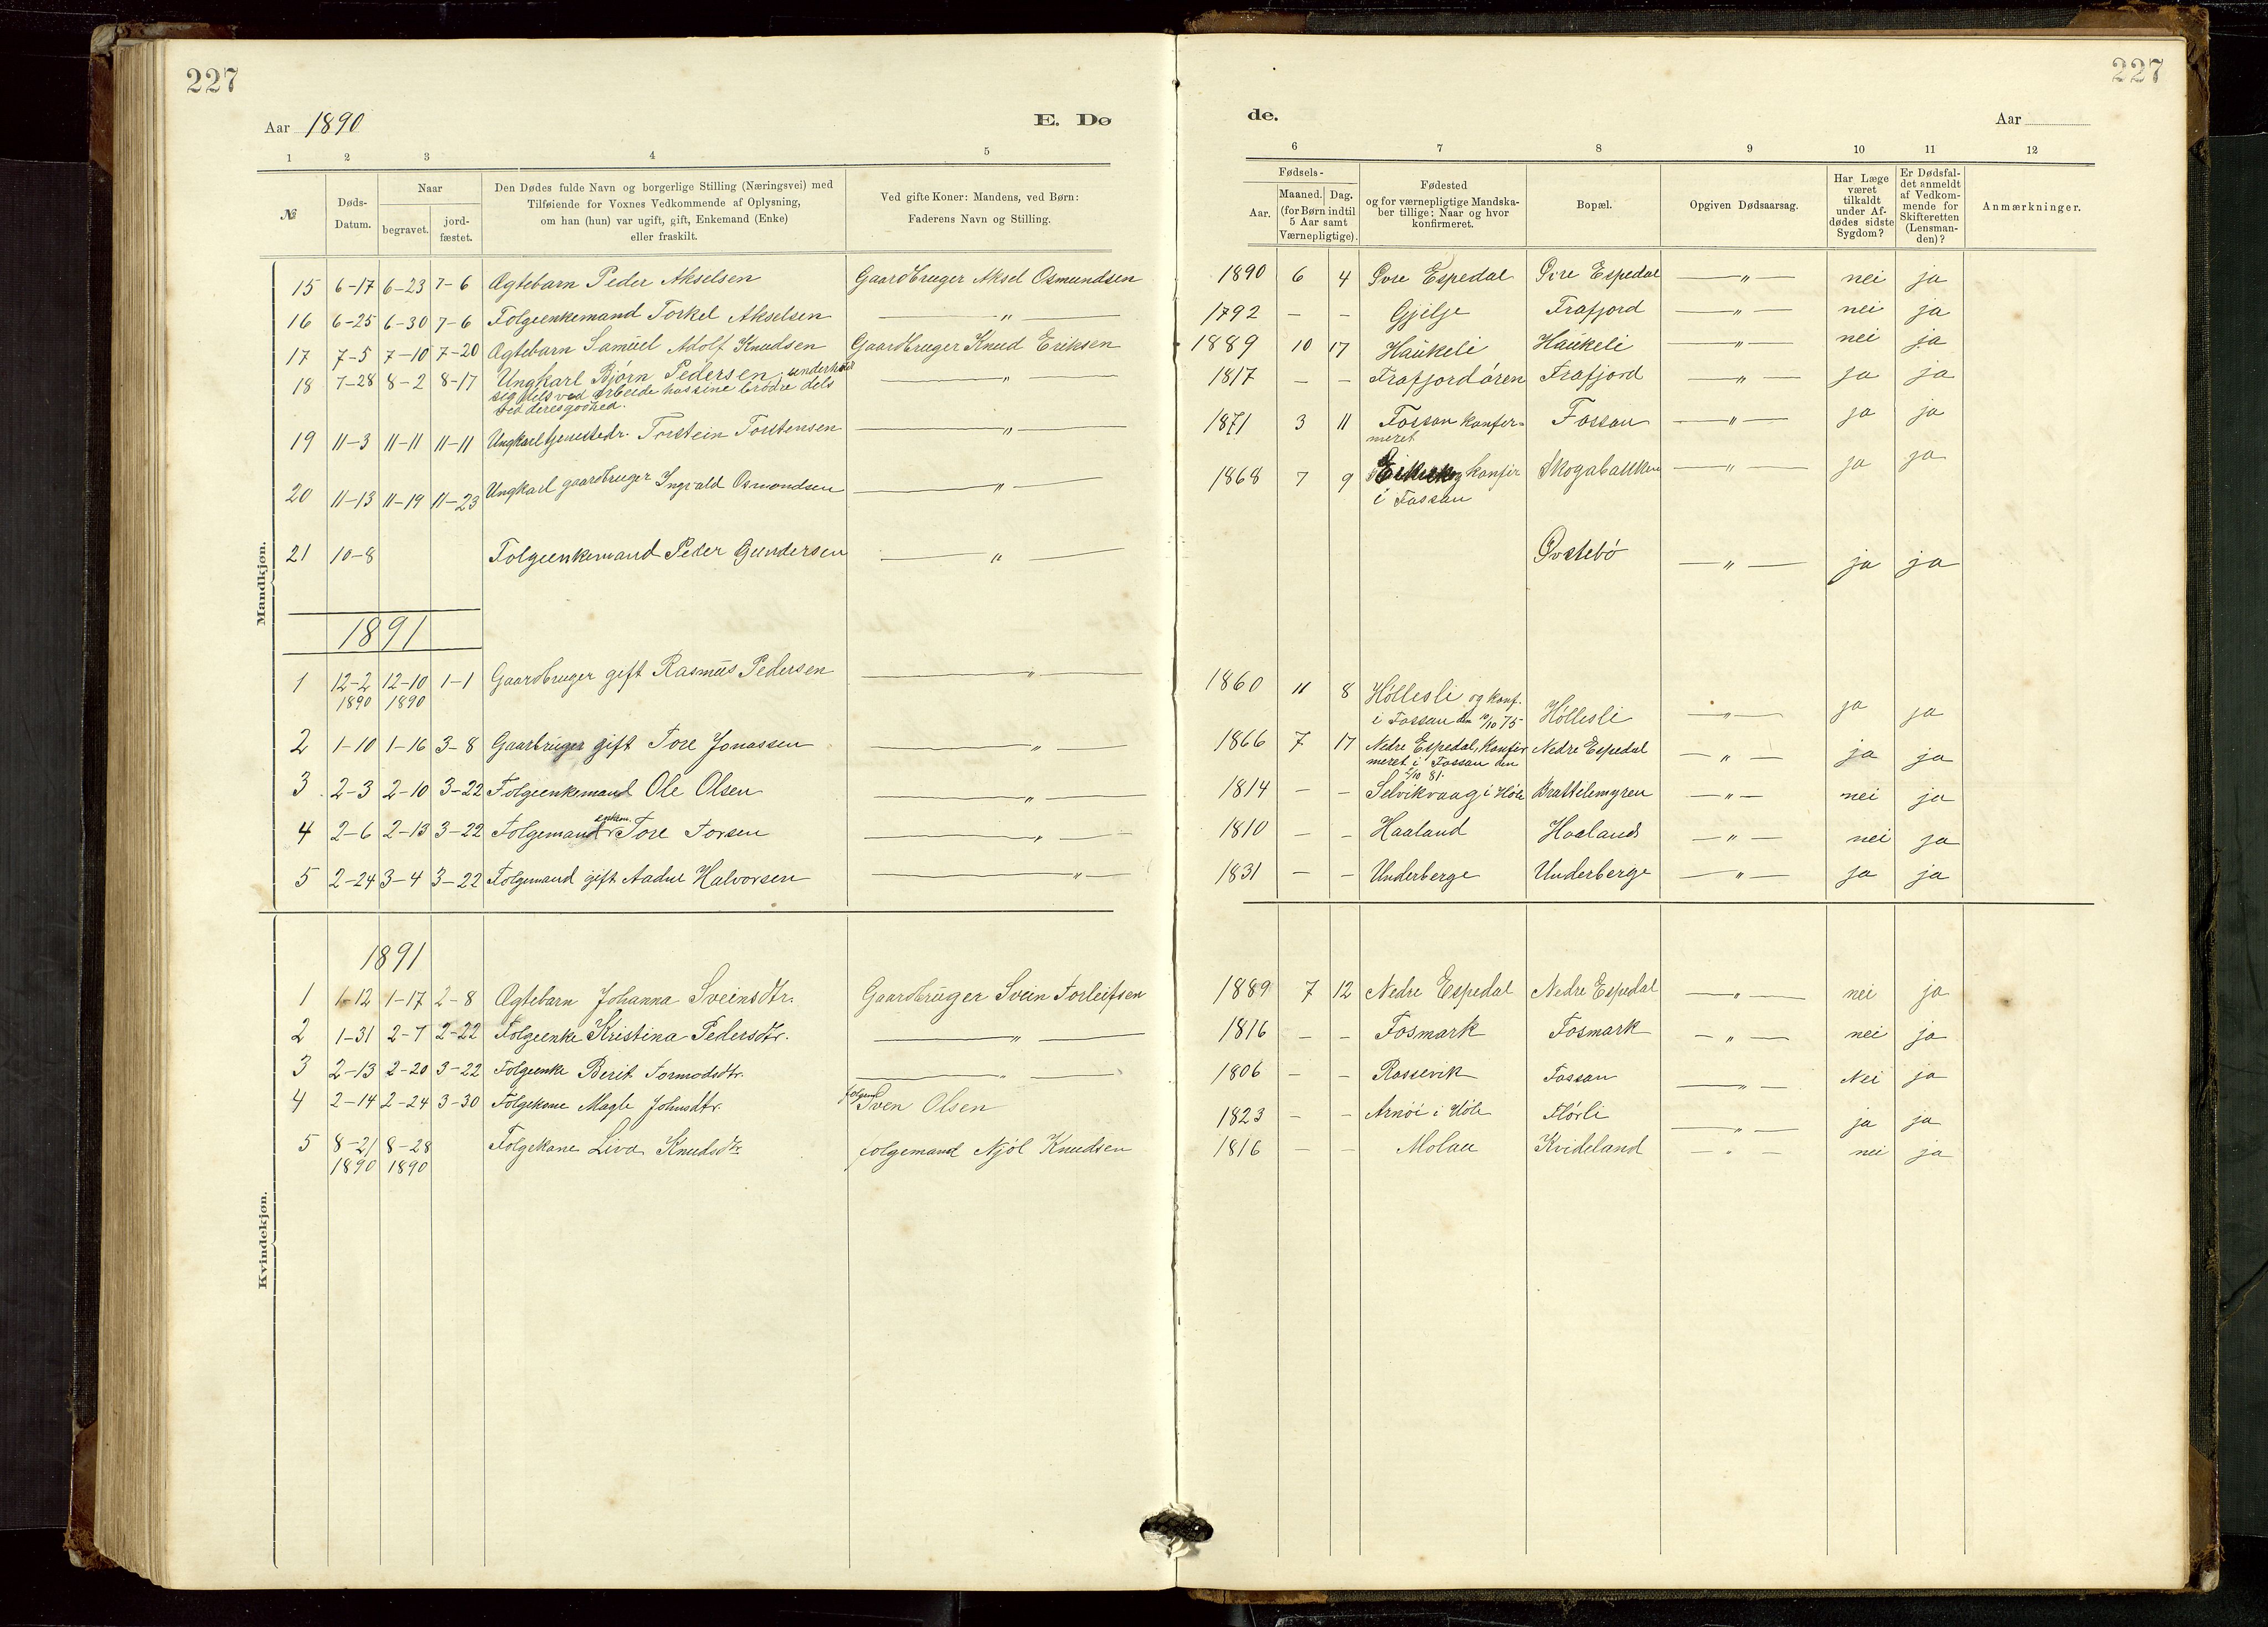 227
227
Aar 1890
E. Dø
de.
Aar
1 2 3 4 5
6 7 8 9 10 11 12
№
Døds-Datum.
Naar
begravet.
jord-fæstet.
Den Dødes fulde Navn og borgerlige Stilling (Næringsvei) med
Tilføiende for Voxnes Vedkommende af Oplysning,
om han (hun) var ugift, gift, Enkemand (Enke)
eller fraskilt.
Ved gifte Koner: Mandens, ved Børn:
Faderens Navn og Stilling.
Fødsels-
Aar.
Maaned. Dag.
(for Børn indtil
5 Aar samt
Værnepligtige).
Fødested
og for værnepligtige Mandska-
ber tillige: Naar og hvor
konfirmeret.
Bopæl.
Opgiven Dødsaarsag.
Har Læge
været
tilkaldt
under Af-
dødes sidste
Sygdom?
Er Dødsfal-
det anmeldt
af Vedkom-
mende for
Skifteretten
(Lensman-
den)?
Anmærkninger.
Mandkjøn.
15 6-17 6-23 7-6 Ægtebarn Peder Akselsen Gaardbruger Aksel Osmundsen 1890 6 4 Øvre Espedal Øvre Espedal — " — nei ja
16 6-25 6-30 7-6 Folgeenkemand Torkel Akselsen — " — 1792 - - Gjilje Frafjord — " — nei ja
17 7-5 7-10 7-20 Ægtebarn Samuel Adolf Knudsen Gaardbruger Knud Eriksen 1889 10 17 Haukeli Haukeli — " — nei ja
18 7-28 8-2 8-17 Ungkarl Bjørn Pedersen, underholdt — " — 1817 - - Frafjordøren Frafjord — " — ja ja
sig dels ved Arbeide hos sine brødre dels
ved deres godhed.
19 11-3 11-11 11-11 Ungkarl tjenestedr. Torstein Torstensen — " — 1871 3 11 Fossan konfir= Fossan — " — ja ja
meret
20 11-13 11-19 11-23 Ungkarl gaardbruger Ingvald Osmondsen — " — 1868 7 9 og konfir Skogabakken — " — ja ja
i Fossan
21 10-8 Folgeenkemand Peder Gundersen — " — Øvstebö — " — ja ja
1891
1 12-2 12-10 1-1 Gaardbruger gift Rasmus Pedersen — " — 1860 11 8 Höllesli og konf.
1890 1890 i Fossan den 10/10 75 Höllesli — " — ja ja
2 1-10 1-16 3-8 Gaarbruger gift Tore Jonassen — " — 1866 7 17 Nedre Espedal, Konfir Nedre Espedal — " — ja ja
meret i Fossan den
2/10 81.
3 2-3 2-10 3-22 Folgeenkemand Ole Olsen — " — 1814 - - Selvikvaag i Höle Brattelemyren — " — nei ja
enkem.
4 2-6 2-13 3-22 Folgemand Tore Torsen — " — 1810 - - Haaland Haaland — " — nei ja
5 2-24 3-4 3-22 Folgemand gift Aadne Halvorsen — " — 1831 - - Underberge Underberge — " — ja ja
Kvindekjøn.
1891
1 1-12 1-17 2-8 Ægtebarn Johanna Sveinsdtr. Gaardbruger Svein Torleifsen 1889 7 12 Nedre Espedal Nedre Espedal — " — nei ja
2 1-31 2-7 2-22 Folgeenke Kristina Pedersdtr. — " — 1816 - - Fosmark Fosmark — " — nei ja
3 2-13 2-20 3-22 Folgeenke Berit Tormodsdtr. — " — 1806 - - Rossevik Fossan — " — Nei ja
4 2-14 2-24 3-30 Folgekone Magle Johnsdtr. folgemd Sven Olsen 1823 - - Arnöi i Höle Flörli — " — ja ja
5 8-21 8-28 Folgekone Liva Knudsdtr. folgemand Njöl Knudsen 1816 - - Molau Kvideland — " — nei ja
1890 1890